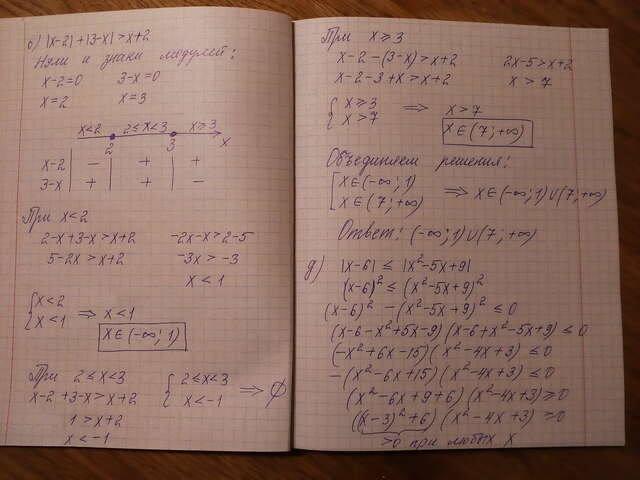 б) |x-2|+|3-x|>x+2
Нули и знаки модулей:
x-2=0 3-x=0
x=2 x=3
x<2 2≤x<3 x≥3
2 3 x
x-2 | - | + | +
3-x | + | + | -
При x<2
2-x+3-x>x+2 -2x-x>2-5
5-2x>x+2 -3x>-3
x<1
{x<2
{x<1 ⇒ x<1
x∈(-∞;1)
При 2≤x<3 {2≤x<3
x-2+3-x>x+2 {x<-1 ⇒ ∅
1>x+2
x<-1
При x≥3
x-2-(3-x)>x+2 2x-5>x+2
x-2-3+x>x+2 x>7
{x≥3
{x>7 ⇒ x>7
x∈(7;+∞)
Объединяем решения:
[x∈(-∞;1)
[x∈(7;+∞) ⇒ x∈(-∞;1)∪(7;+∞)
Ответ: (-∞;1)∪(7;+∞)
д) |x-6|≤|x²-5x+9|
(x-6)²≤(x²-5x+9)²
(x-6)²-(x²-5x+9)²≤0
(x-6-x²+5x-9)(x-6+x²-5x+9)≤0
(-x²+6x-15)(x²-4x+3)≤0
-(x²-6x+15)(x²-4x+3)≤0
(x²-6x+9+6)(x²-4x+3)≥0
((x-3)²+6)(x²-4x+3)≥0
>0 при любых x